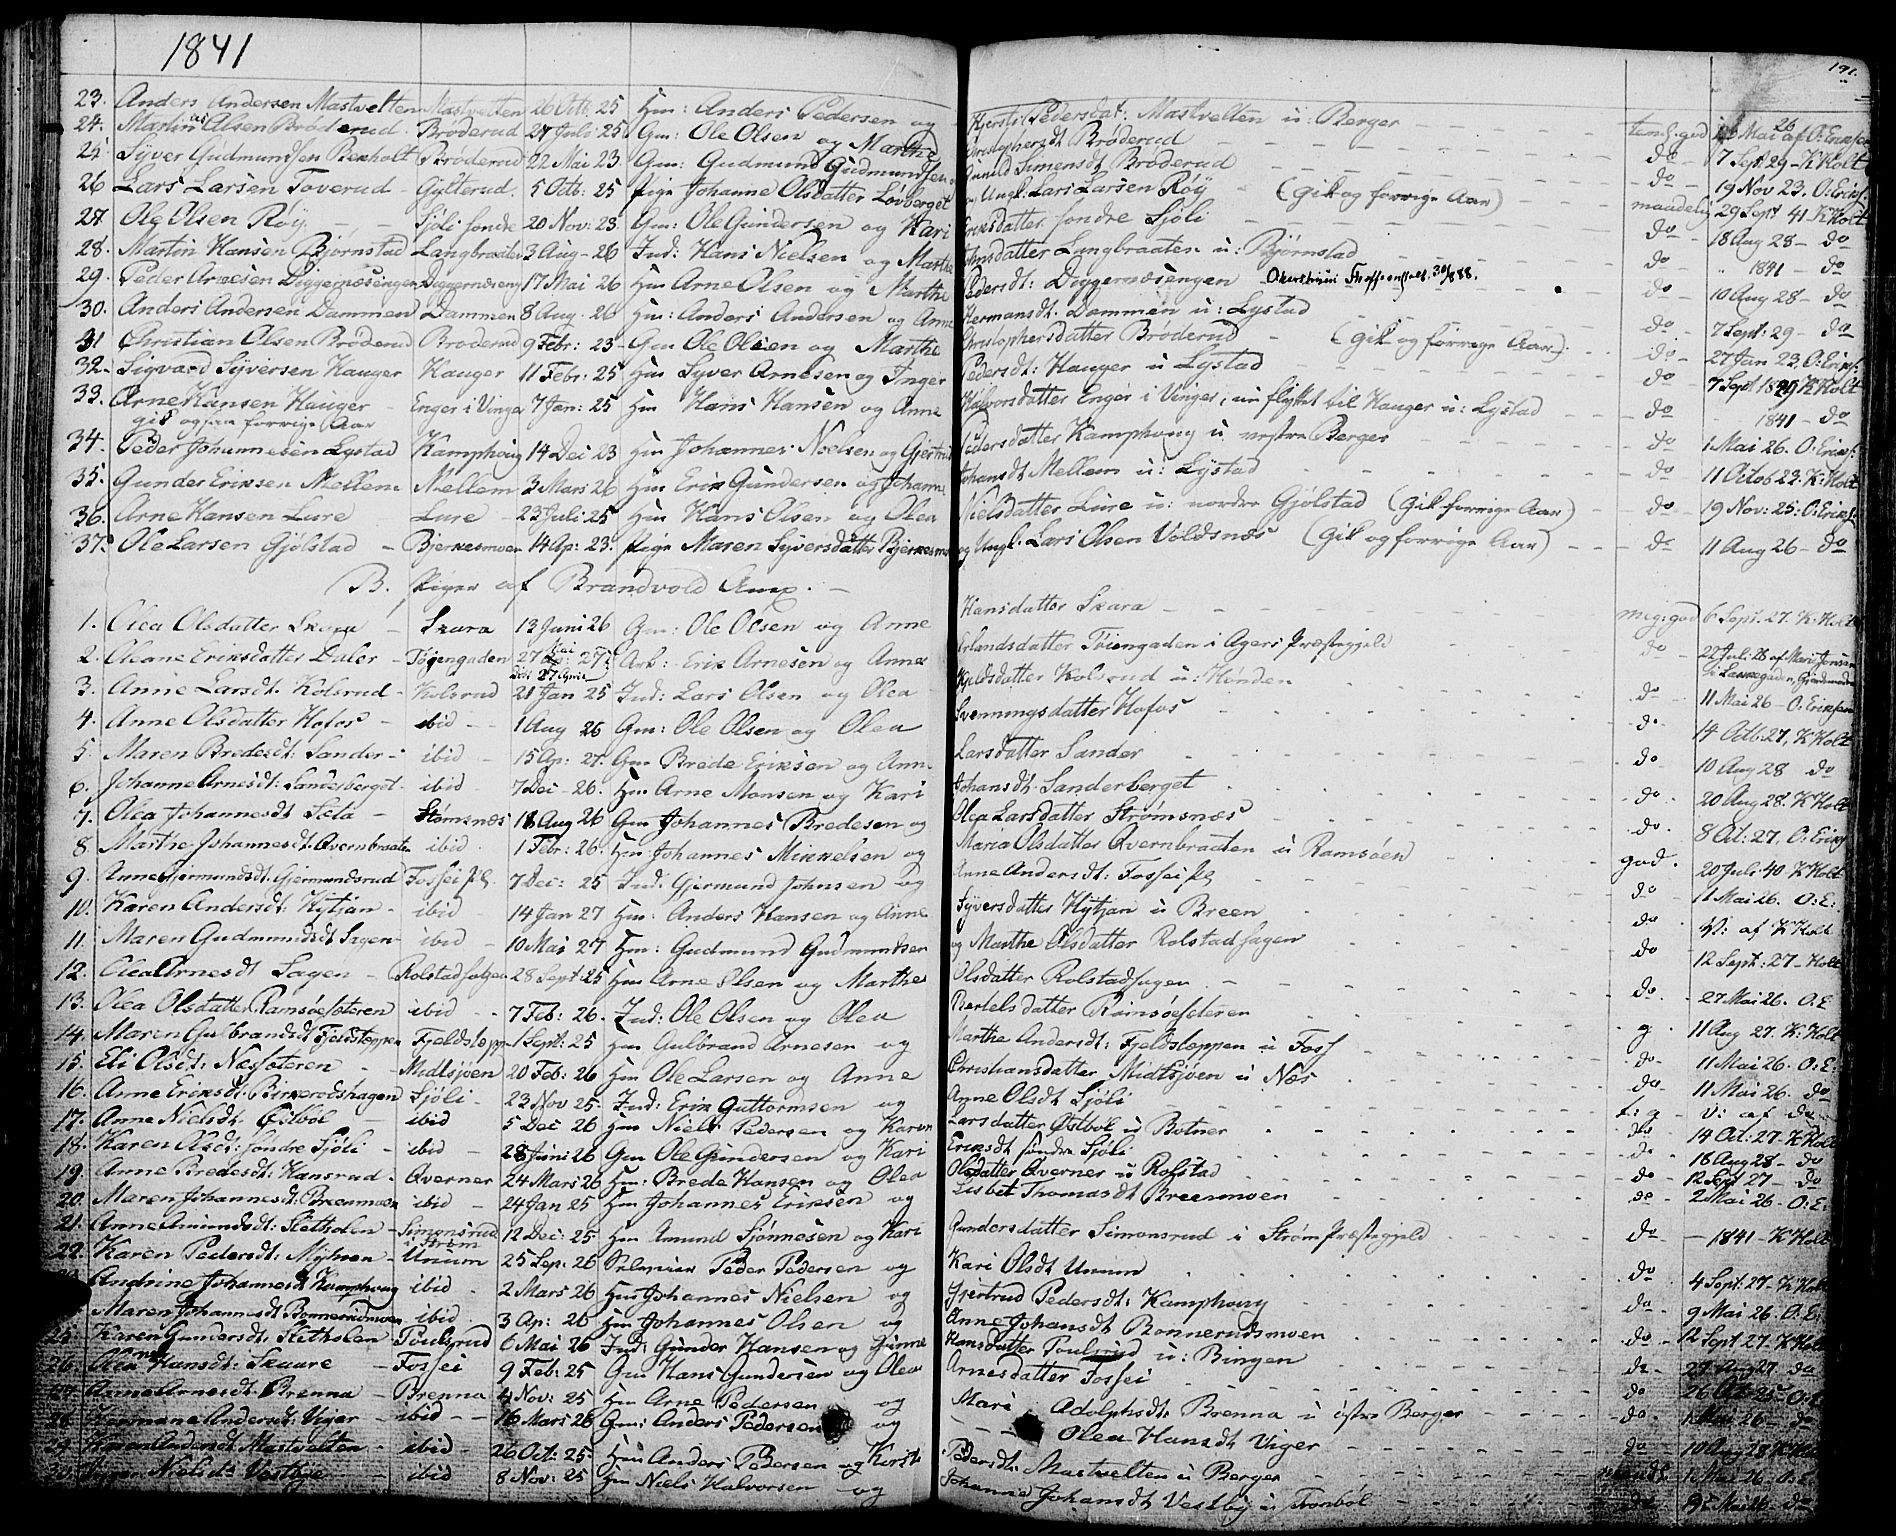 1841
191.
23. Anders Andersen Mastvelten Mastvelten 26 Octb: 25 Hm: Anders Pedersen og Kjersti Pedersdat: Mastvelten u: Berger temf: god Mai 26 af O: Eriksen
24. Martinus Olsen Bröderud Bröderud 27 Juli 25 Gm: Ole Olsen og Marthe Christophersdt Bröderud do 7 Sept 29 K Holt
25. Syver Gudmundsen Berholt Bröderud 22 Mai 23. Gm: Gudmund Gudmundsen Simensdt Bröderud do 19 Nov 23. O: Eriks:
26 Lars Larsen Toverud Gylterud 5 Octb: 25 Pige Johanne Olsdatter Lövberget og Ungk: Lars Larsen Röy (gik og forrige Aar) maadelig 29 Sept 41 K Holt
27 Ole Olsen Röy Sjöli söndre 20 Nov: 23. Gm: Ole Gundersen og Kari Eriksdatter söndre Sjöli do 18 Aug 28 do
28. Martin Hansen Björnstad Langbraaten 3 Aug 26 Ind: Hans Nielsen og Marthe Langbraaten u: Bjørnstad do 1841 do
29. Peder Arnesen Diggernæsengen Diggernæseng 17 Mai 26 Hm Arne Olsen og Marthe Pedersdt: Diggernæsengen 30/8 88. do 10 Aug 28 do
30. Anders Andersen Dammen Dammen 8 Aug 26 Hm: Anders Andersen og Anne Hermansdt. Dammen u: Lystad do 7 Sept: 29 do
31 Christian Olsen Bröderud Bröderud 9 Febr: 23 Gm Ole Olsen og Marthe Christophersdatter Bröderud (gik og forrige Aar) do 27 Jan 23, O: Eriks:
32. Sigvard Syversen Hauger Hauger 11 Febr: 25 Hm Syver Arnesen og Inger Pedersdt: Hauger u Lystad do 7 Sept K Holt
33. Arne Hansen Hauger Enger i Vinger 7 Jan: 25 Hm Hans Hansen og Anne Halvorsdatter Enger i Vinger, nu flyttet til Hauger u: Lystad do 1841 do
gik ogsaa forrige Aar
34. Peder Johannesen Lystad Kamphoug 14 Dec 23 Hm Johannes Nielsen og Gjertrud Pedersdatter Kamphoug u vestre Berger do 1 Mai 26. O: Eriks:
35. Gunder Eriksen Mellem Mellem 3 Mars 26 Hm Erik Gundersen og Johanne Johansdt Mellem u: Lystad do 11 Octob 23. K: Holt
36. Arne Hansen Lure Lure 23 Juli 25 Hm Hans Olsen og Olea Nielsdatter Lure u: nordre Gjölstad (Gik forrige Aar) do 19 Nov: 25: O: Eriks:
37. Ole Larsen Gjölstad Bjerkesmoen 14 Ap: 23. Pige Maren Syversdatter Bjerkesmo og Ungk: Lars Olsen Voldsnæs (Gik og forrige Aar) do 11 Aug 26 do
B. Piger af Brandvold Anx.
1. Olea Olsdatter Skara Skara 13 Juni 26 Gm: Ole Olsen og Anne Hansdatter Skara meg: god 6 Sept. 27. K: Holt
2. Oleane Eriksdatter Daler Töyengaden 27 Arb: Erik Arnesen og Anne Erlandsdatter Töiengaden i Agers Præstegjeld do 27 Juli 28 af Mari Jensen
3. Anne Larsdt: Kolsrud Kolsrud 21 Jan 25 Ind: Lars Olsen og Olea Kjeldsdatter Kolsrud u: Hönden do 11 Mai 26 O: Eriksen
4. Anne Olsdatter Hofos ibid 1 Aug 26 Gm: Ole Olsen og Olea Svenningsdatter Hofos do 14 Octb: 27, K Holt
5. Maren Bredesdt: Sander ibid 15 Ap: 27. Gm Brede Eriksen og Anne Larsdatter Sander do 10 Aug 28 do
6. Johanne Arnesdt: Sanderberget ibid 7 Dec 26. Hm Arne Monsen og Kari Johansdt. Sanderberget do 20 Aug 28. K Holt
7. Olea Johannesdt Sæla Stömsnæs 18 Aug 26 Gm Johannes Bredesen og Olea Larsdatter Strömsnæs do 8 Oct: 27. O: Eriks
8 Marthe Johannesdt: Qvernbraaten ibid 1 Febr: 26. Hm Johannes Mikkelsen og Maria Olsdatter Qvernbraaten u Ramsöen god. 20 Juli 40 K Holt
9. Anne Gjermundsdt: Gjermundsrud Fossei 7 Dec: 25 Ind: Gjermund Johnsen og Anne Andersdt: Fossei do 11 Mai 26. O: E:
10. Karen Andersdt: Hytjan ibid 14 Jan 27 Hm: Anders Hansen og Anne Syversdatter Hytjan u Breen do V: af K Holt
11. Maren Gudmundsdt Sagen ibid 10 Mai 27 Hm: Gudmund Gudmundsen og Marthe Olsdatter Rolstadsagen do 12 Sept: 27 Holt
12. Olea Arnesdt Sagen Rolstadsagen 28 Sept 25 Hm Arne Olsen og Marthe Olsdatter Rolstadsagen do 27 Mai 26. O: E
13. Olea Olsdatter Ramsöesæteren ibid 7 Feb: 26. Ind: Ole Olsen og Olea Bertelsdatter Ramsöesæteren g 11 Aug 27. K: Holt
14. Maren Gulbrandsdt Fjeldstoppen Fjeldstopp 1 Sept: 25 Hm Gulbrand Arnesen og Marthe Andersdt: Fjeldstoppen u Foss do 11 Mai 26. O: E:
15. Eli Olsdt: Næsseteren Midtsjöen 20 Feb: 26 Hm Ole Larsen og Anne Christiansdatter Midtsjöen u Næs do 11 Mai 26. do
16. Anne Eriksdt: Birkerodshagen Sjöli 23 Nov 25. Ind: Erik Guttormsen og Anne Olsdt Sjöli t: g V: af do
17. Anne Nielsdt. Östböl ibid 5 Dec 26 Hm Niels Pedersen og Karen Larsdatter Östböl u Botner do 14 Oct: 27 K Holt
18. Karen Olsdt: söndre Sjöli ibid 28 Juni 26 Gm Ole Gundersen og Kari Eriksdt söndre Sjöli do 18 Aug 28 do
19. Anne Bredesdt: Hansrud Qverner 24 Mars 26 Hm: Brede Hansen og Olea Olsdatter Qverner u Rolstad do 12 Sept 27 do
20. Maren Johannesdt: Breenmoen ibid 24 Jan 25 Hm Johannes Eriksen og Lisbet Thomasdt Breenmoen do 2 Mai 26 O: E:
21. Anne Amundsdt: Stetholen Simonsrud i Ström 12 Dec: 25 Hm Amund Sjönnesen og Kari Gundersdatter Simonsrud i Ström Præstegjeld do 1841 K Holt
22. Karen Pedersdt: Myhren Unum 25 Sep: 26 Peder Pedersen og Kari Olsdt Unum do 4 Sept. 27 K Holt
Andrine Johannesdt Kamphoug ibid 2 Mars 26 Hm Johannes Nielsen og Gjertrud Pedersdt: Kamphoug do 9 Mai 26 O: E:
Maren Johannesdt Bonnerudmoen ibid 3 Ap: 26 Hm Johannes Olsen og Anne Johansdt Bonnerudsmoen do 12 Sept 27 K Holt
25. Karen Gundersdt: Stetholen Poulsrud 6 Mai 26 Ind: Gunder Hansen og Gunne Hansdatter Poulsrud u: Bingen do 27 Aug 27 do
26. Olea Hansdt: Skaare Fossei 9 Feb: 25 Gm Hans Gundersen og Olea Arnesdatter Fossei do 26 Oct 25 O: E
27. Anne Arnesdt: Brenna Brenna 4 Nov: 25 Hm Arne Pedersen og Mari Adolphsdt: Brenna u östre Berger do 1 Mai 26 do
28. Hermane Andersdt: Viger ibid 16 Mars 26 Gm: Anders Pedersen og Olea Hansdt Viger do 10 Aug 28 K Holt
29. Karen Andersdt Mastvelten ibid 26 Oct: 25. Hm Anders Pedersen og Kirsti Pedersdt: Mastvelten u Berger 1 Mai 26 O: E
30. Inger Nielsdt Vestbye ibid 8 Nov: 25 Hm Niels Halvorsen og Johanne Johansdt Vestby u Tronböl do do